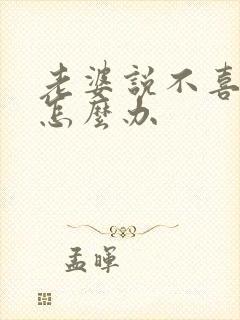 老婆說不喜
怎麼办
孟暉